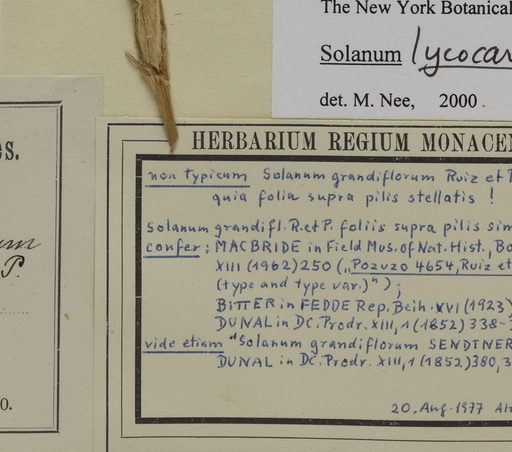 The New York Botanical
Solanum lycocar
det. M. Nee, 2000.
es.
um
P.
0.
HERBARIUM REGIUM MONACEN
non typicum Solanum grandiflorum Ruiz et P
quia folia supra pilis stellatis !
Solanum grandifl. R. et P. foliis supra pilis sim
confer: MACBRIDE in Field Mus. of Nat. Hist., Bo
XIII (1962) 250 („Pozuzo 4654, Ruiz et
(type and type var.)");
BITTER in FEDDE Rep. Beih. XVI (1923)
DUNAL in DC. Prodr. XIII, 1 (1852) 338-3
vide etiam "Solanum grandiflorum SENDTNER
DUNAL in DC. Prodr. XIII, 1 (1852) 380, 3
20. Aug. 1977